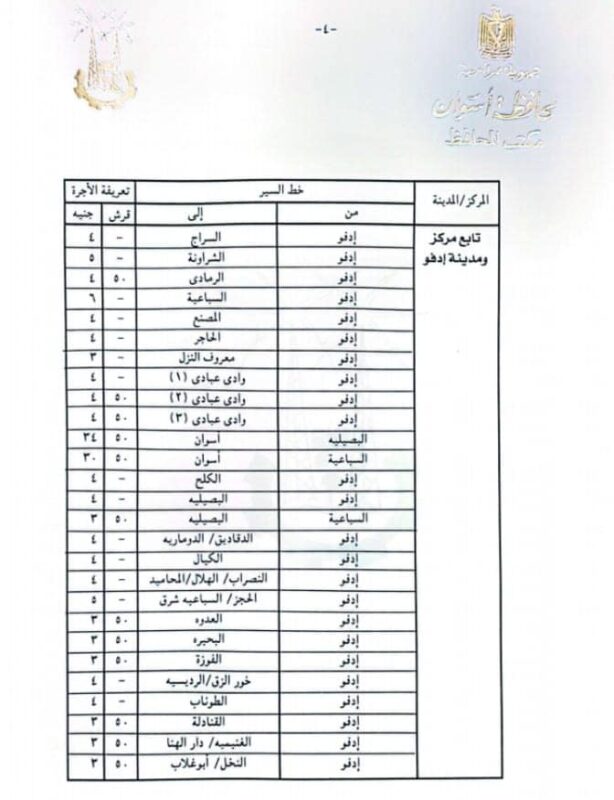 -٤-
جمهورية مصر العربية
محافظة أسوان
مكتب المحافظ
المركز/المدينة | خط السير | تعريفة الأجرة
من | إلى | قرش | جنيه
تابع مركز ومدينة إدفو
إدفو | السراج | - | ٤
إدفو | الشراونة | - | ٥
إدفو | الرمادى | ٥٠ | ٤
إدفو | السباعية | - | ٦
إدفو | المصنع | - | ٤
إدفو | الحاجر | - | ٤
إدفو | معروف النزل | - | ٣
إدفو | وادى عبادى (١) | - | ٤
إدفو | وادى عبادى (٢) | ٥٠ | ٤
إدفو | وادى عبادى (٣) | ٥٠ | ٤
البصيليه | أسوان | ٥٠ | ٣٤
السباعية | أسوان | ٥٠ | ٣٠
إدفو | الكلح | - | ٤
إدفو | البصيليه | - | ٤
السباعية | البصيليه | ٥٠ | ٣
إدفو | الدقاديق/ الدوماريه | - | ٤
إدفو | الكيال | - | ٤
إدفو | النصراب/ الهلال/المحاميد | - | ٤
إدفو | الحجز/ السباعيه شرق | - | ٥
إدفو | العدوه | ٥٠ | ٣
إدفو | البحيره | ٥٠ | ٣
إدفو | الفوزة | ٥٠ | ٣
إدفو | خور الزق/الرديسيه | - | ٤
إدفو | الطوناب | - | ٤
إدفو | القنادلة | ٥٠ | ٣
إدفو | الغنيميه/ دار الهنا | ٥٠ | ٣
إدفو | النخل/ أبوغلاب | ٥٠ | ٣